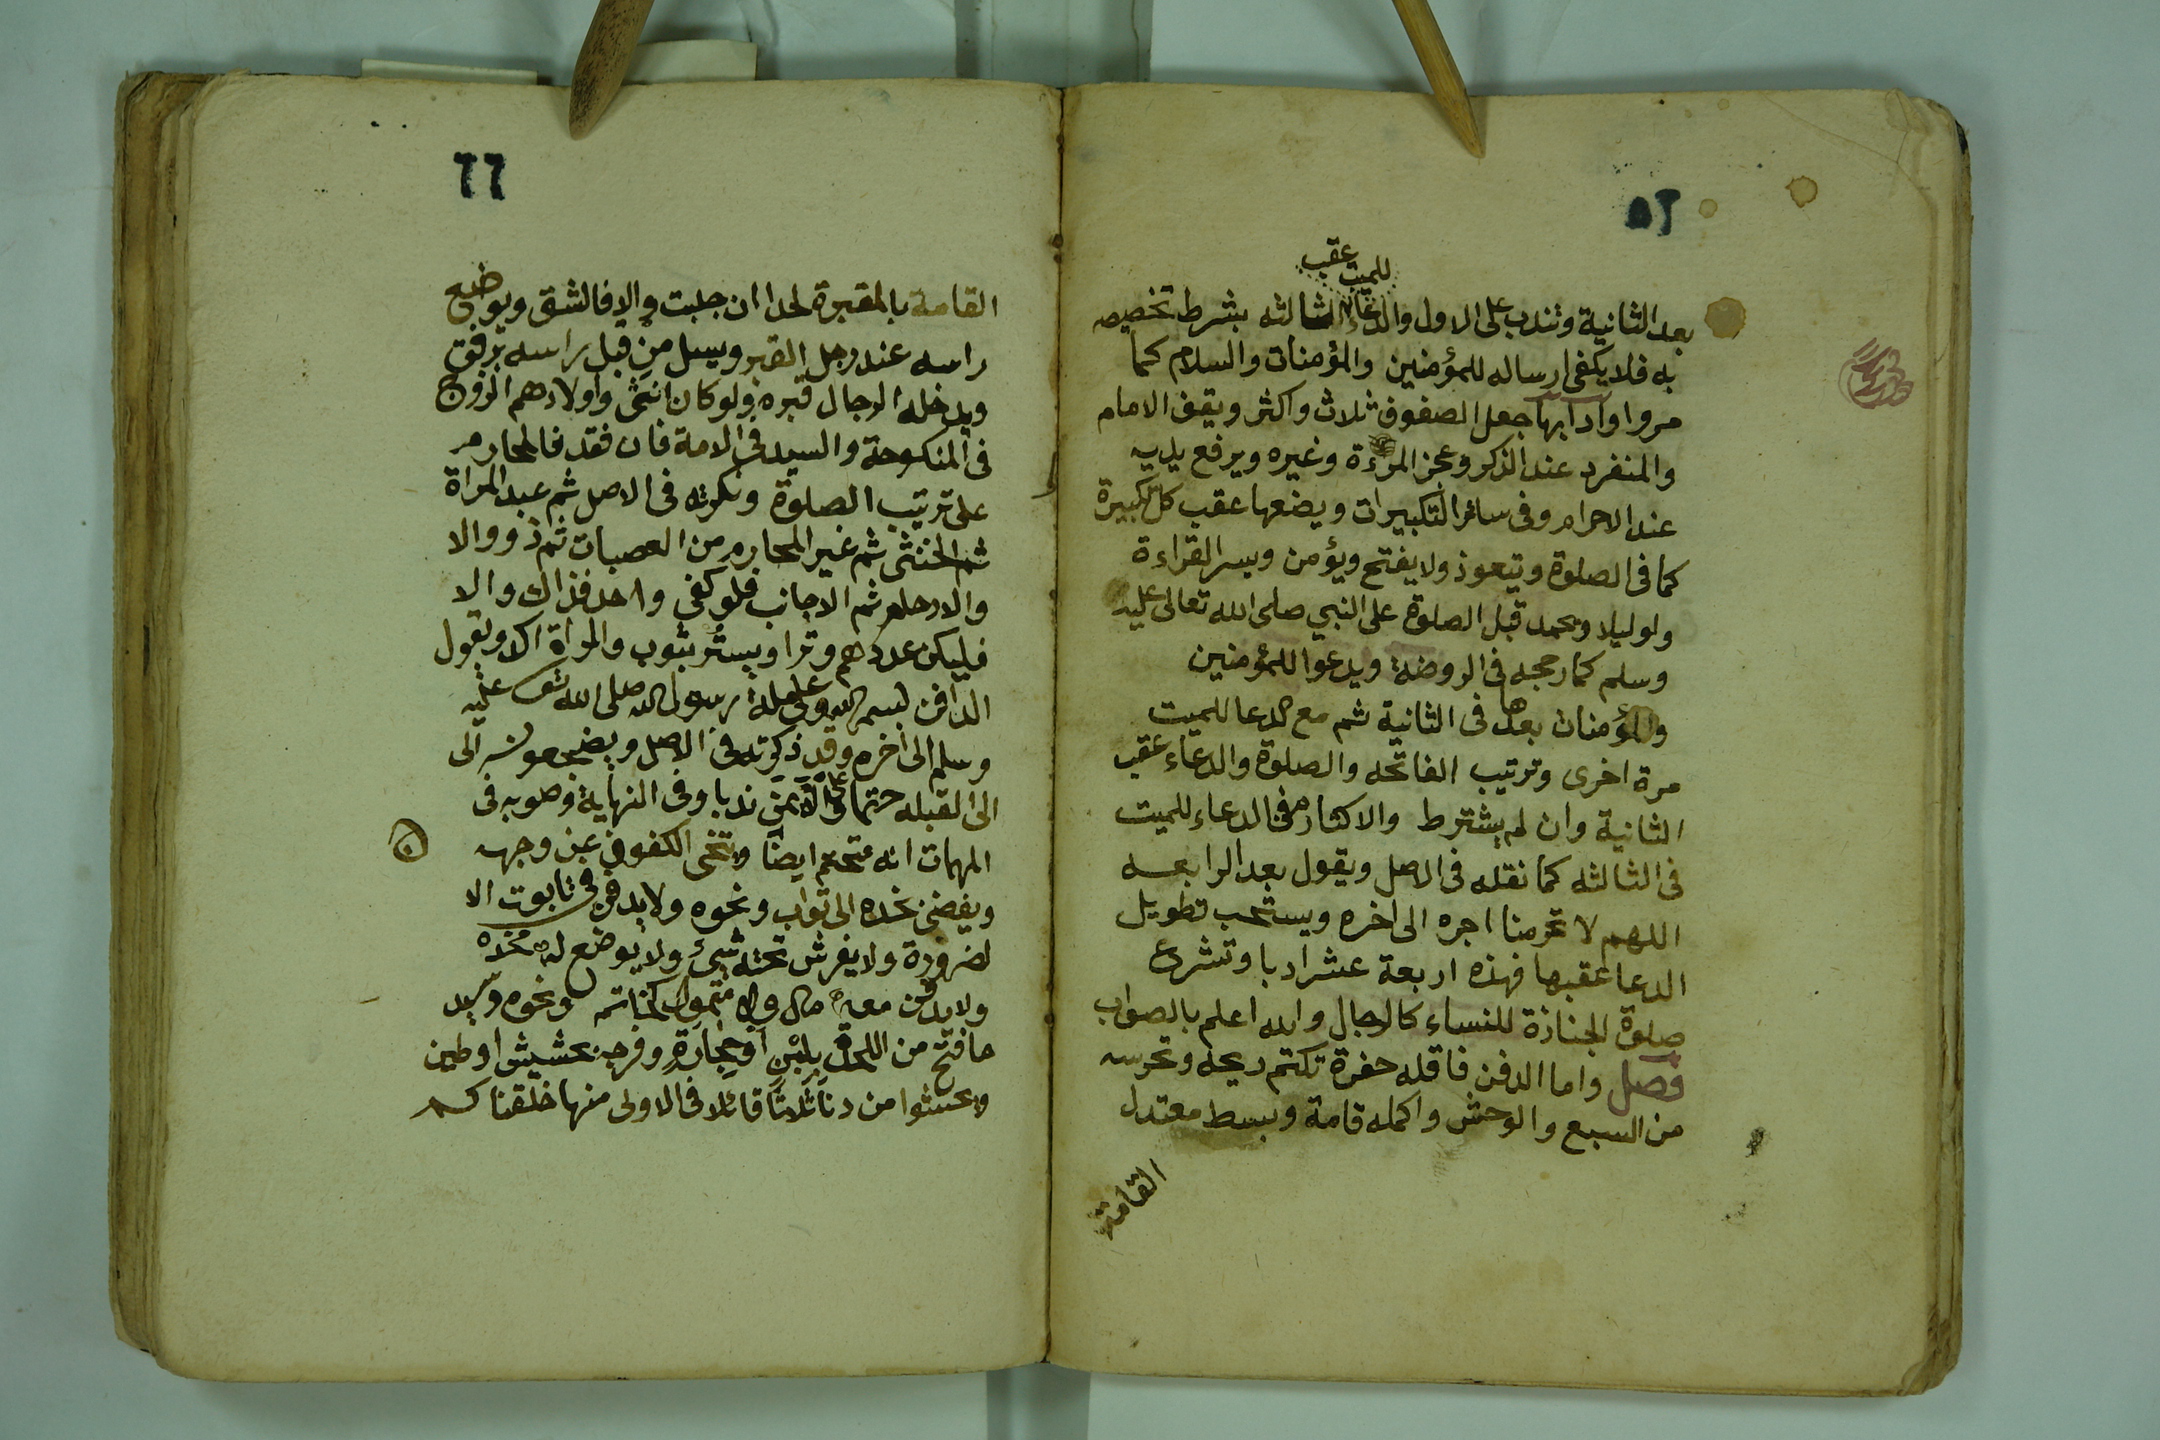 ٥٢
للميت عقب
بعد الثانية وتندب على الاول والدعاء الثالثه بشرط تخصيصه
به فلا يكفى ارساله للمؤمنين والمؤمنات والسلام كما
مر واوآدابها جعل الصفوف ثلاث واكثر ويقف الامام
والمنفرد عند الذكر وعجز المرءة وغيره ويرفع يديه
عند الاحرام وفى سائر التكبيرات ويضعها عقب كل تكبيرة
كما فى الصلوة ويتعوذ ولا يفتح ويؤمن ويسر القراءة
ولو ليلا ويحمد قبل الصلوة على النبي صلى الله تعالى عليه
وسلم كما رجحه فى الروضة ويدعوا للمؤمنين
والمؤمنات بعدها فى الثانية ثم مع الدعا للميت
مرة اخرى وترتيب الفاتحه والصلوة والدعاء عقب
الثانية وان لم يشترط والاكثار من الدعاء للميت
فى الثالثه كما نقله فى الاصل ويقول بعد الرابعه
اللهم لا تحرمنا اجره الى اخره ويستحب تطويل
الدعا عقبها فهذه اربعة عشر ادبا وتشرع
صلوة الجنازة للنساء كالرجال والله اعلم بالصواب
فصل واما الدفن فاقله حفرة تكتم ريحه وتحرسه
من السبع والوحش واكمله قامة وبسط معتدل
القامة
٦٦
القامة بالمقبرة لحدا ان صلبت والا فالشق ويوضع
راسه عند رجل القبر ويسل من قبل راسه برفق
ويدخله الرجال قبره ولو كان انثى واولادهم الزوج
فى المنكوحة والسيد فى الامة فان فقد فالمحارم
على ترتيب الصلوة وذكرته فى الاصل ثم عبد المراة
ثم الخنثى ثم غير المحارم من العصبات ثم ذووالا
والارحام ثم الاجانب فلو كفى واحد فذاك والا
فليكن عددهم وترا ويستر بثوب والمراة اكد ويقول
الدافن بسم الله وعلى ملة رسول الله صلى الله تع عليه
وسلم الى اخره وقد ذكرته فى الاصل ويضجعونه الى
الى القبله حتما وعلى الايمن ندبا وفى النهاية وصوبه فى
المهمات انه متحتم ايضا وينحى الكفوف عن وجهه
ويفضى بخده الى تراب ونحوه ولا يدفن فى تابوت الا
لضرورة ولا يفرش تحته شيئ ولا يوضع له مخده
ولا يدفن معه مال ولا متمول كخاتم ونحوه وسد
ما فتح من اللحد بِلَبْنٍ او حِجَارَةٍ وفرجه بحشيش او طين
ويحثوا من دنا ثلاثًا قائلا فى الاولى منها خلقناكم